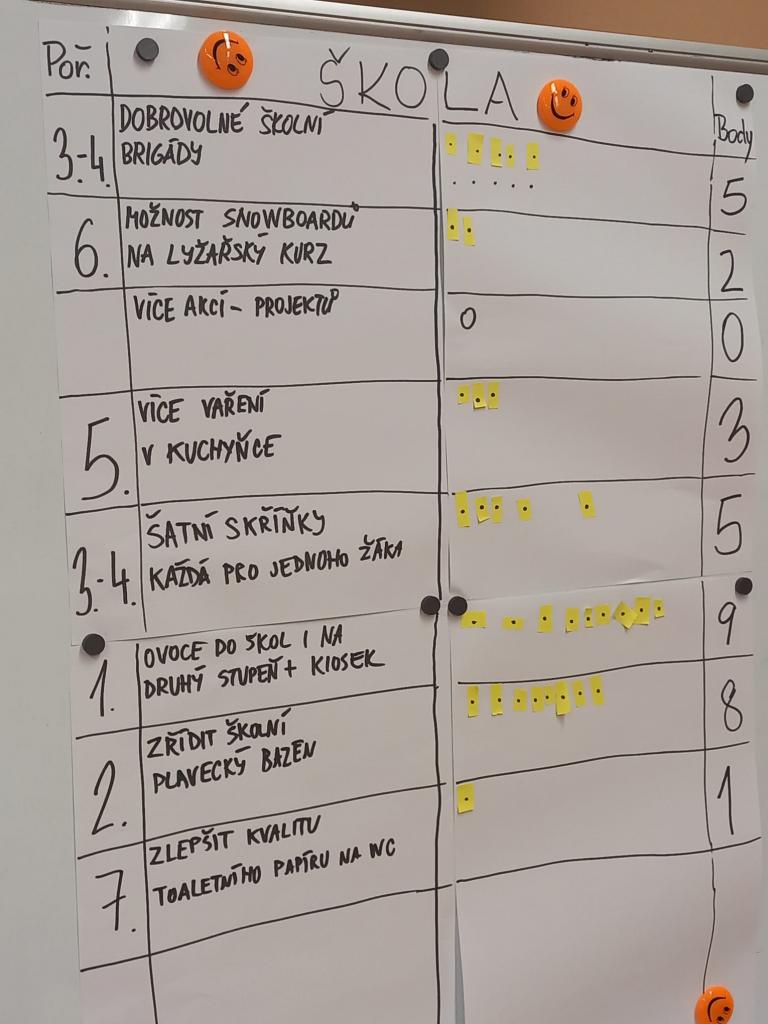 Poř. ŠKOLA Body
3.-4. DOBROVOLNÉ ŠKOLNÍ
BRIGÁDY 5
6. MOŽNOST SNOWBOARDŮ
NA LYŽAŘSKÝ KURZ 2
VÍCE AKCÍ - PROJEKTŮ 0 0
5. VÍCE VAŘENÍ
V KUCHYŇCE 3
3.-4. ŠATNÍ SKŘÍŇKY
KAŽDÁ PRO JEDNOHO ŽÁKA 5
1. OVOCE DO ŠKOL I NA
DRUHÝ STUPEŇ + KIOSEK 9
2. ZŘÍDIT ŠKOLNÍ
PLAVECKÝ BAZÉN 8
7. ZLEPŠIT KVALITU
TOALETNÍHO PAPÍRU NA WC 1